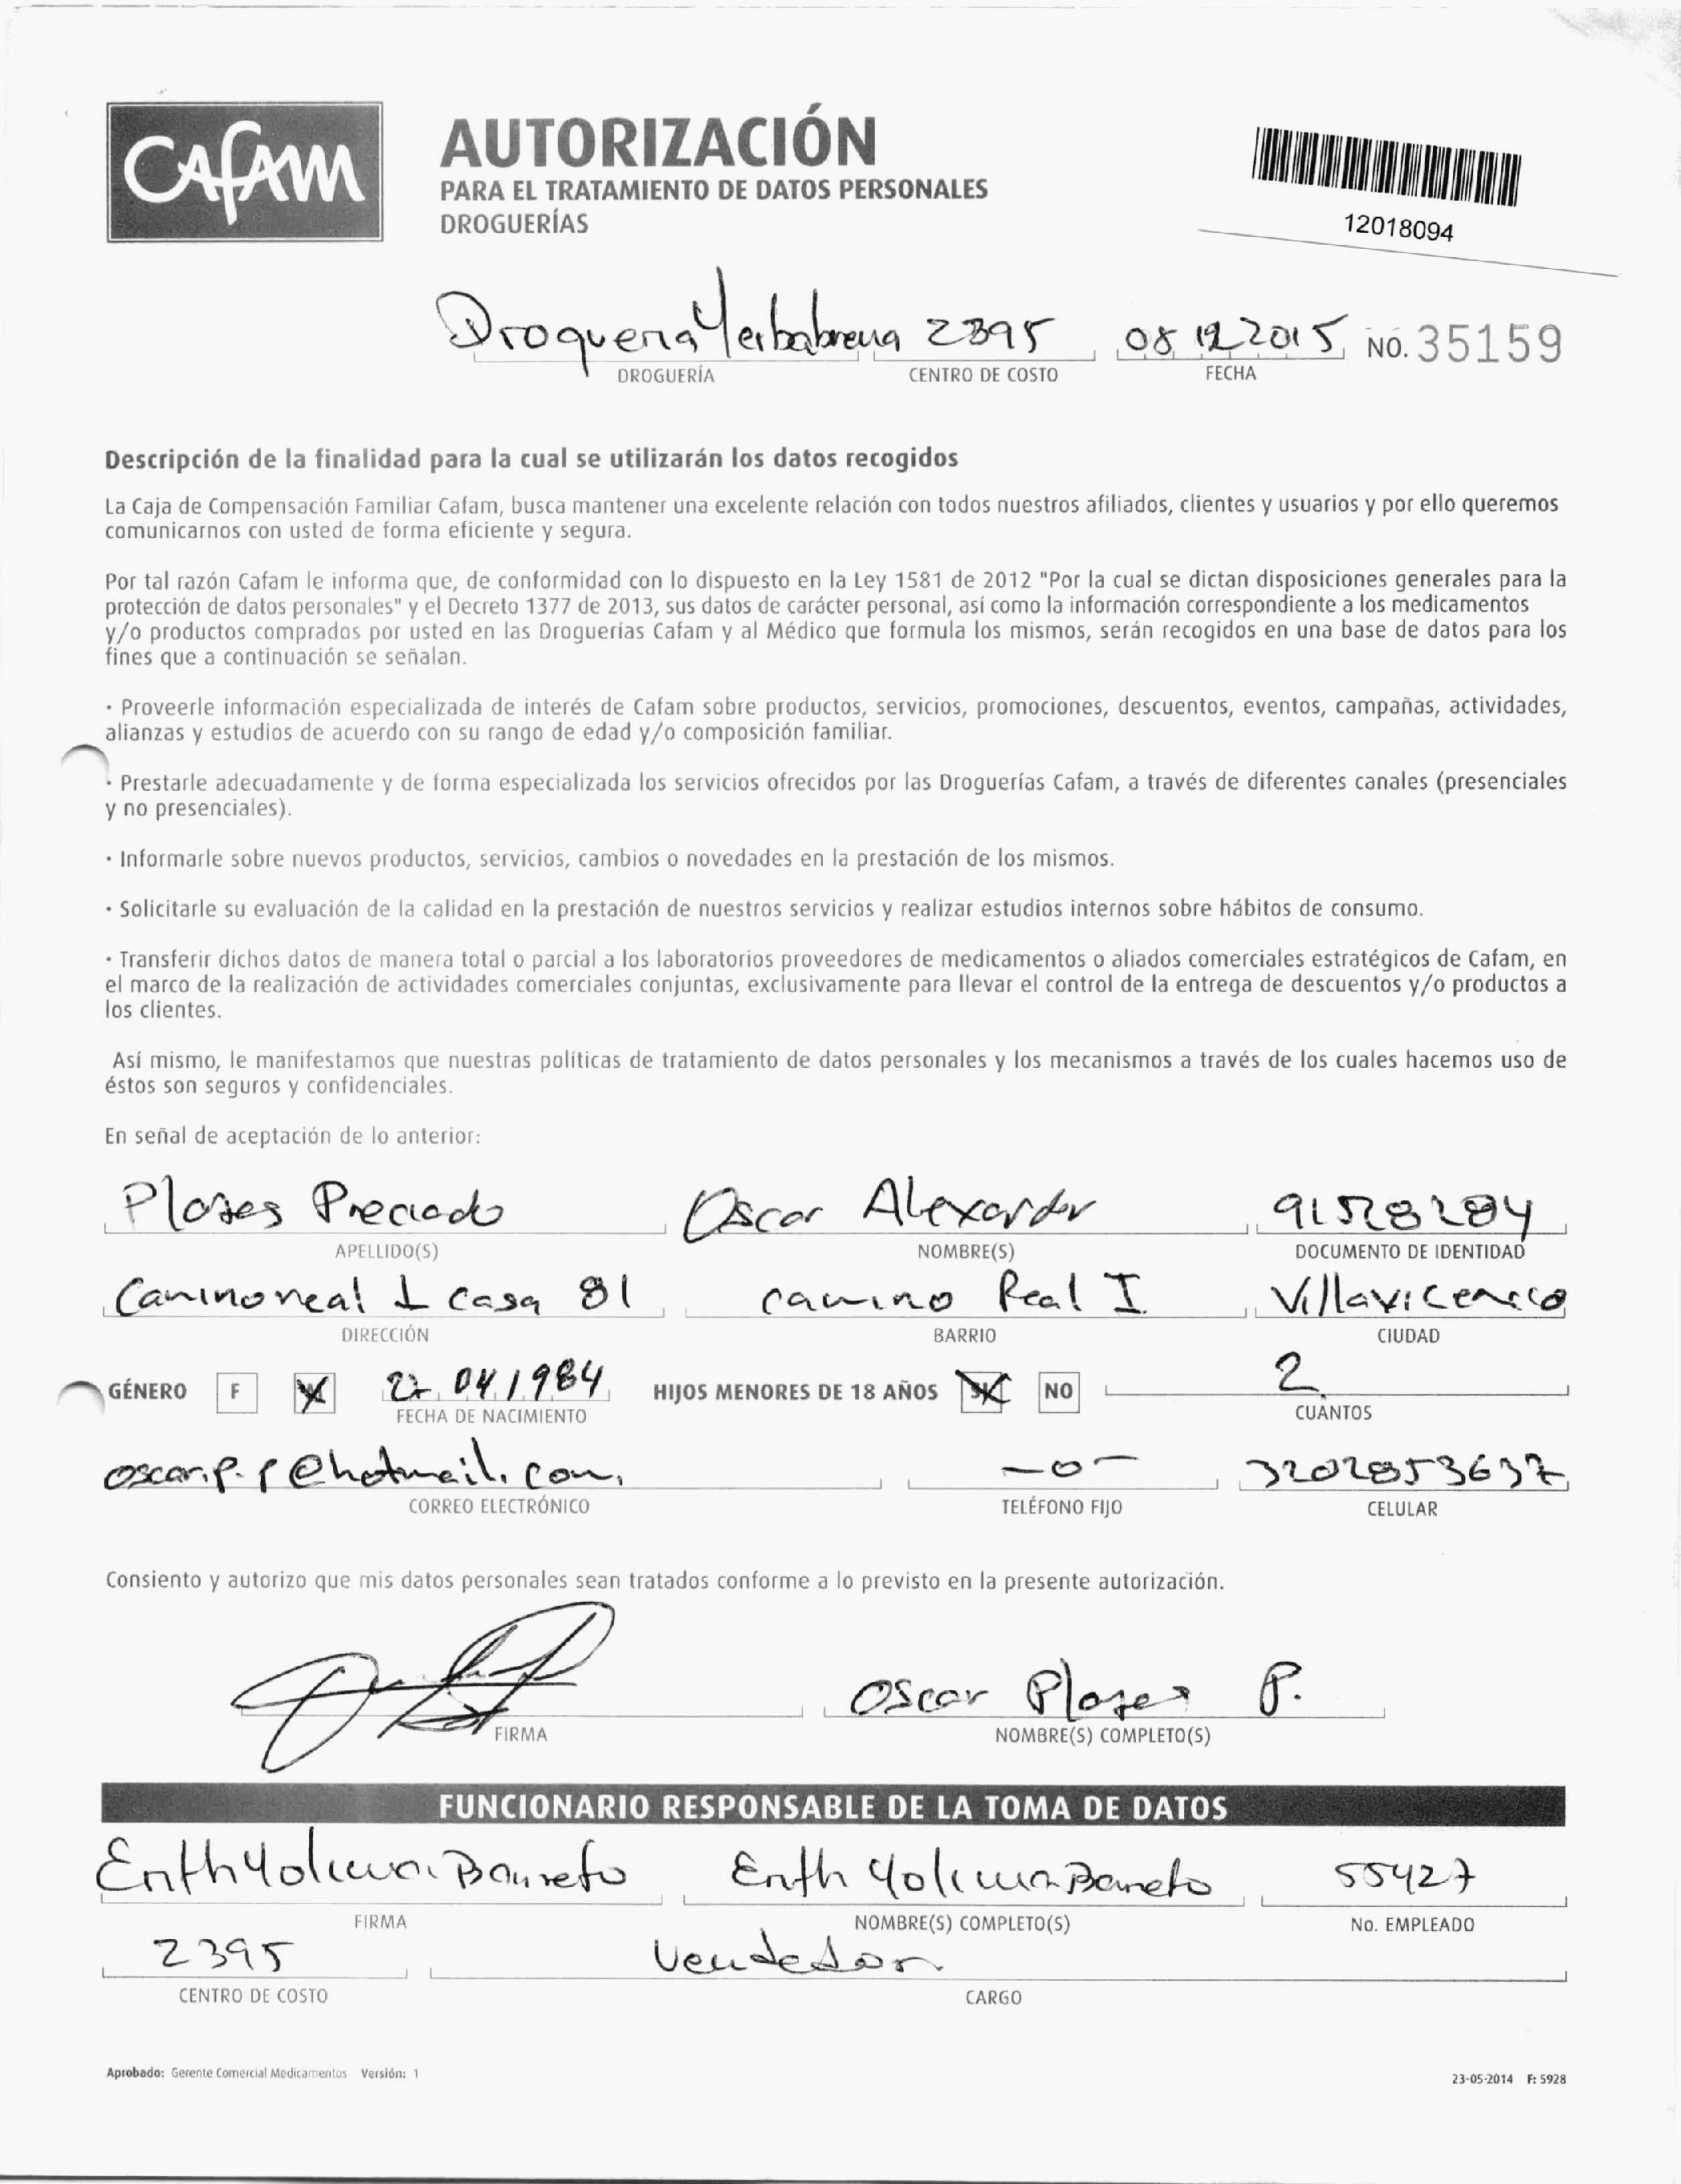 CAFAM
AUTORIZACIÓN
PARA EL TRATAMIENTO DE DATOS PERSONALES
DROGUERÍAS
12018094
Drogueria Yerbabuena 2395 08 12 2015 NO. 35159
DROGUERÍA CENTRO DE COSTO FECHA
Descripción de la finalidad para la cual se utilizarán los datos recogidos
La Caja de Compensación Familiar Cafam, busca mantener una excelente relación con todos nuestros afiliados, clientes y usuarios y por ello queremos
comunicarnos con usted de forma eficiente y segura.
Por tal razón Cafam le informa que, de conformidad con lo dispuesto en la Ley 1581 de 2012 "Por la cual se dictan disposiciones generales para la
protección de datos personales" y el Decreto 1377 de 2013, sus datos de carácter personal, así como la información correspondiente a los medicamentos
y/o productos comprados por usted en las Droguerías Cafam y al Médico que formula los mismos, serán recogidos en una base de datos para los
fines que a continuación se señalan.
· Proveerle información especializada de interés de Cafam sobre productos, servicios, promociones, descuentos, eventos, campañas, actividades,
alianzas y estudios de acuerdo con su rango de edad y/o composición familiar.
· Prestarle adecuadamente y de forma especializada los servicios ofrecidos por las Droguerías Cafam, a través de diferentes canales (presenciales
y no presenciales).
· Informarle sobre nuevos productos, servicios, cambios o novedades en la prestación de los mismos.
· Solicitarle su evaluación de la calidad en la prestación de nuestros servicios y realizar estudios internos sobre hábitos de consumo.
· Transferir dichos datos de manera total o parcial a los laboratorios proveedores de medicamentos o aliados comerciales estratégicos de Cafam, en
el marco de la realización de actividades comerciales conjuntas, exclusivamente para llevar el control de la entrega de descuentos y/o productos a
los clientes.
Así mismo, le manifestamos que nuestras políticas de tratamiento de datos personales y los mecanismos a través de los cuales hacemos uso de
éstos son seguros y confidenciales.
En señal de aceptación de lo anterior:
Plazes Preciado Oscar Alexander 91528284
APELLIDO(S) NOMBRE(S) DOCUMENTO DE IDENTIDAD
Caminoreal I casa 81 camino Real I Villavicencio
DIRECCIÓN BARRIO CIUDAD
GÉNERO F 27 04 1984 HIJOS MENORES DE 18 AÑOS SI NO 2
FECHA DE NACIMIENTO CUÁNTOS
oscar.p.p@hotmail.com. -0- 3202853637
CORREO ELECTRÓNICO TELÉFONO FIJO CELULAR
Consiento y autorizo que mis datos personales sean tratados conforme a lo previsto en la presente autorización.
Oscar Plazes P.
FIRMA NOMBRE(S) COMPLETO(S)
FUNCIONARIO RESPONSABLE DE LA TOMA DE DATOS
Enith Yolima Barreto Enith Yolima Barreto 55427
FIRMA NOMBRE(S) COMPLETO(S) No. EMPLEADO
2395 Vendedor
CENTRO DE COSTO CARGO
Aprobado: Gerente Comercial Medicamentos Versión: 1
23-05-2014 F: 5928